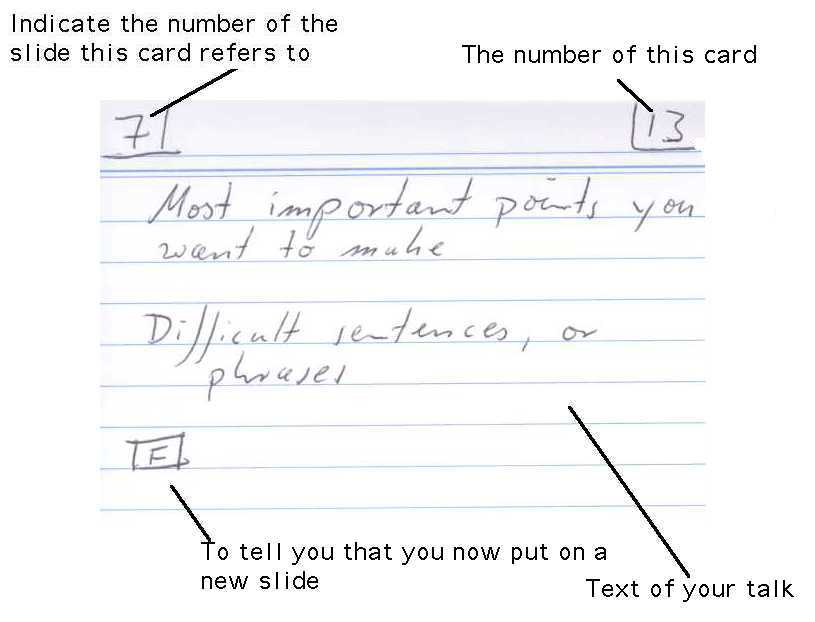 Indicate the number of the
slide this card refers to
The number of this card
7
13
Most important points you
want to make
Difficult sentences, or
phrases
F
To tell you that you now put on a
new slide
Text of your talk